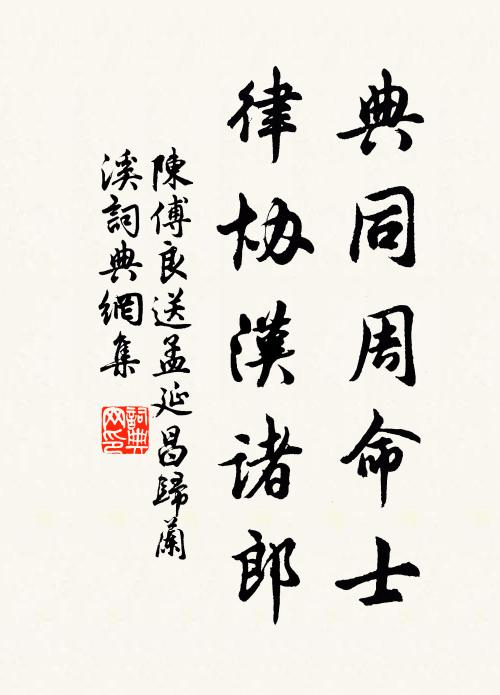 典同周命士
律协漢諸郎
陳傅良送孟延昌歸蘭
溪詞典網集
詞典
网印